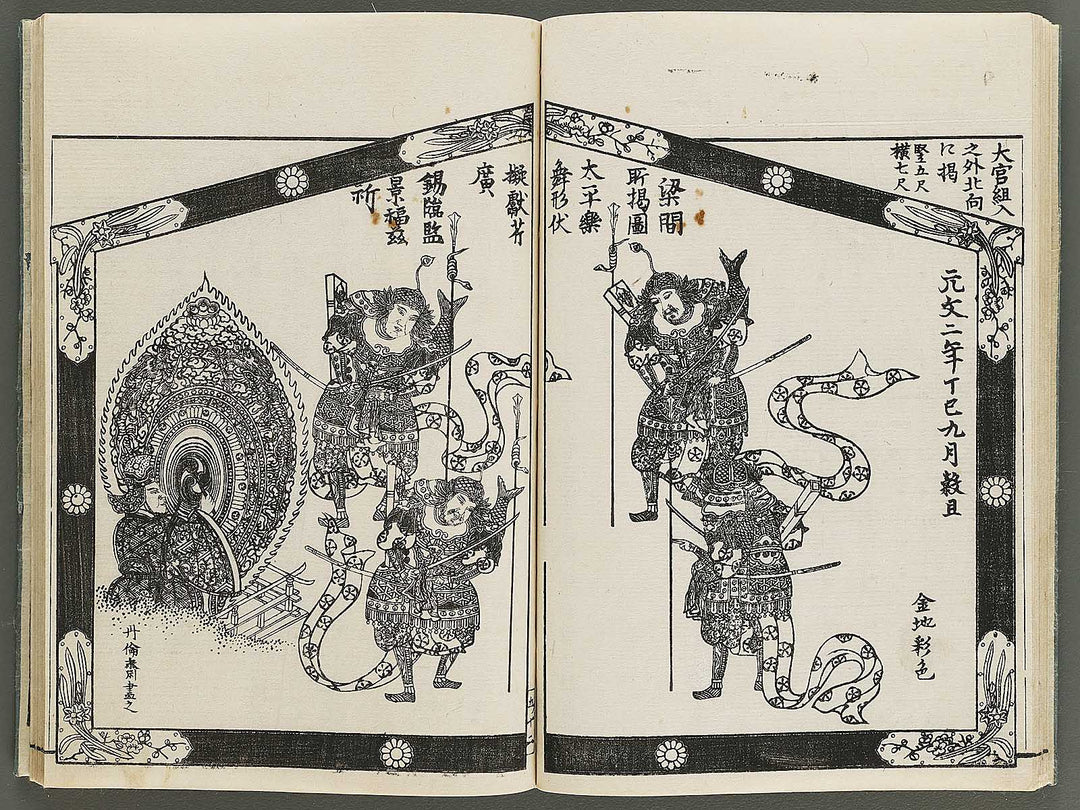 大宮組入
之外北向
に掲
竪五尺
横七尺
元文二年丁巳九月穀旦
金地彩色
梁間
所掲圖
太平樂
舞形伏
擬獻芹
廣
錫臨監
景福茲
祈
丹倫齋圖畫之